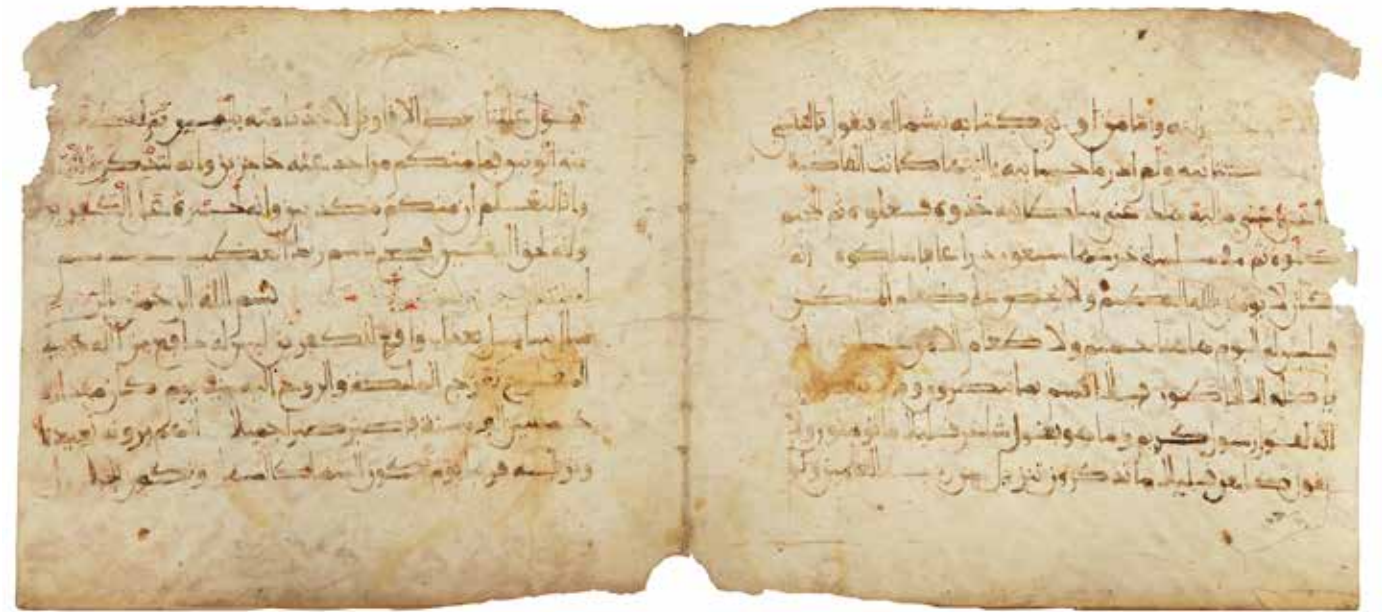 واما من اوتي كتابه بشماله فيقول يا ليتني
كتابيه ولم ادر ما حسابيه يا ليتها كانت القاضية
ما اغنى عني ماليه هلك عني سلطانيه خذوه فغلوه ثم الجحيم
صلوه ثم في سلسلة ذرعها سبعون ذراعا فاسلكوه انه
كان لا يومن بالله العظيم ولا يحض على طعام المسكين
فليس له اليوم هاهنا حميم ولا طعام الا من
ياكله الا الخاطون فلا اقسم بما تبصرون وما
انه لقول رسول كريم وما هو بقول شاعر قليلا ما تومنون ولا
بقول كاهن قليلا ما تذكرون تنزيل من رب العلمين ولو
تقول علينا بعض الاقاويل لاخذنا منه باليمين ثم لقطعنا
منه الوتين فما منكم من احد عنه حاجزين وانه لتذكرة
وانا لنعلم ان منكم مكذبين وانه لحسرة على الكفرين
وانه لحق اليقين فسبح باسم ربك العظيم
بسم الله الرحمن الرحيم
سال سايل بعذاب واقع للكفرين ليس له دافع من الله ذي
المعارج تعرج الملئكة والروح اليه في يوم كان مقداره
خمسين الف سنة فاصبر صبرا جميلا انهم يرونه بعيدا
ونريه قريبا يوم تكون السما كالمهل وتكون الجبال